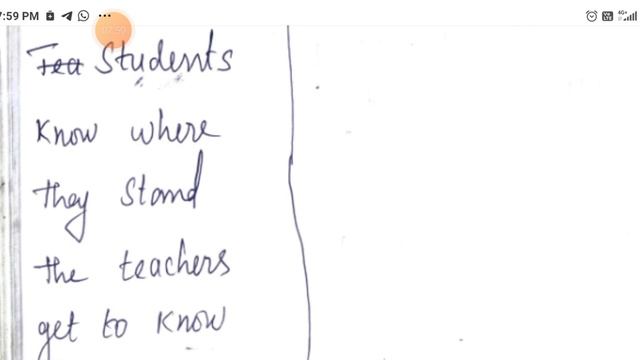 7:59 PM
07:59
4G+
Tea Students
Know where
they stand
the teachers
get to know